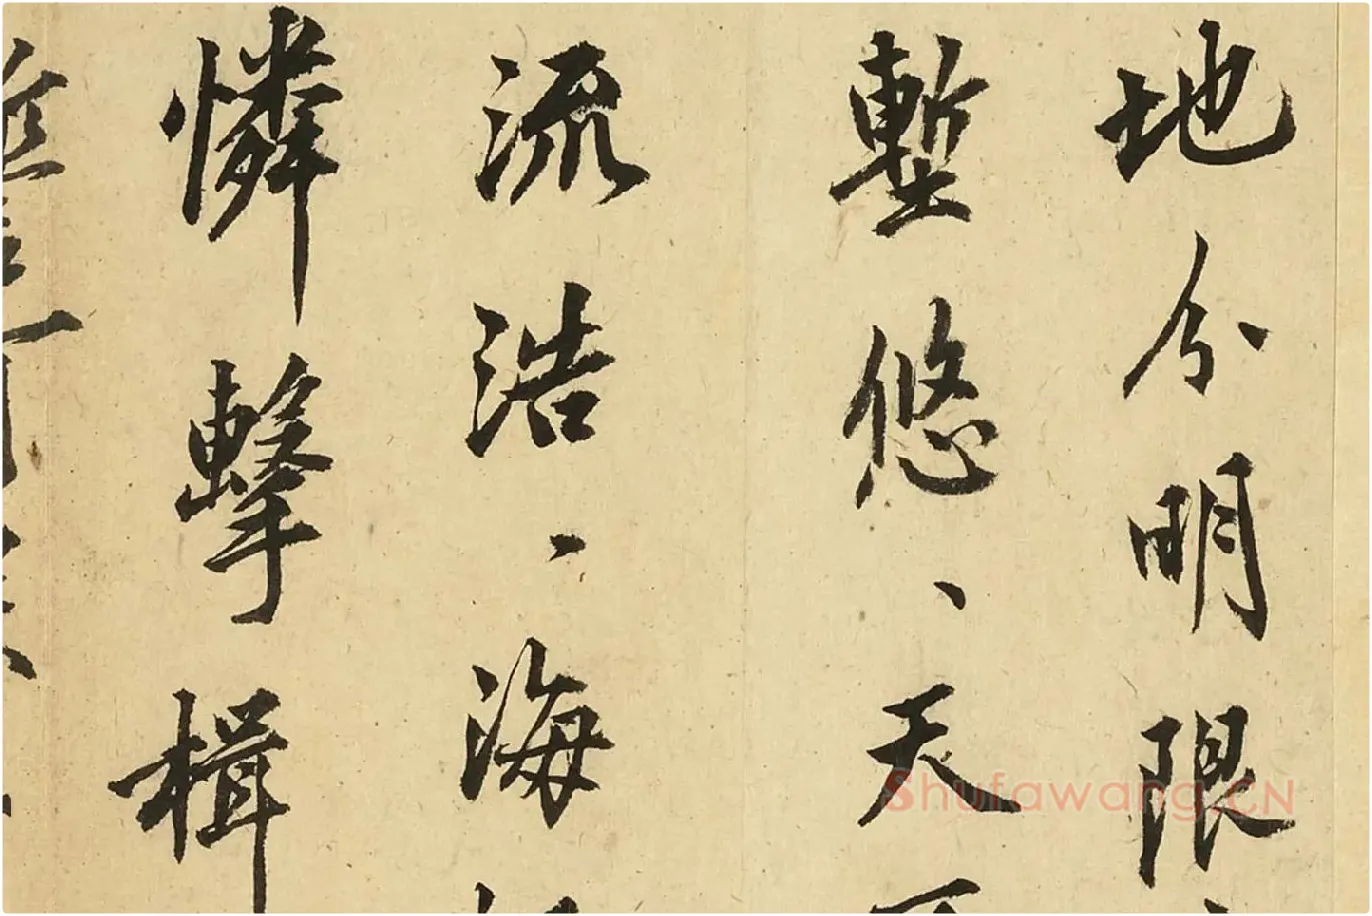 地分明限
塹悠丶天
流浩丶海
憐擊楫
Shufawang.CN